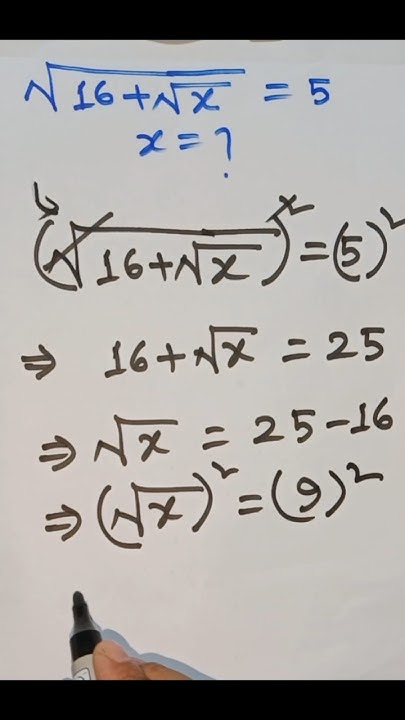 √(16+√x) = 5
x = ?
(√(16+√x))² = (5)²
⇒ 16+√x = 25
⇒ √x = 25-16
⇒ (√x)² = (9)²